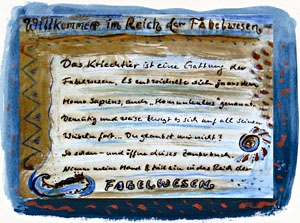 Willkommen im Reich der Fabelwesen
Das Kriechtier ist eine Gattung der
Fabelwesen. Es entwickelte sich aus dem
Homo Sapiens, auch Homunkulus genannt.
Demütig und weise bewegt es sich auf all seinen
Wurzeln fort.. Du glaubst mir nicht?
So öffne dieses Zauberbuch
Nimm meine Hand & in das Reich der
FABELWESEN